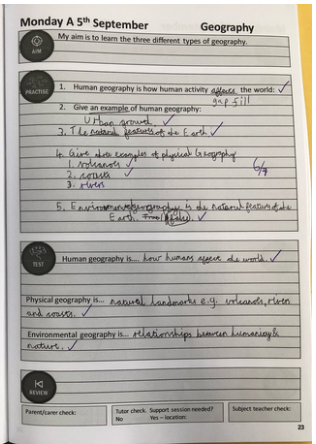 Monday A 5th September Geography
AIM
My aim is to learn the three different types of geography.
PRACTISE
1. Human geography is how human activity affects the world:
gap fill
2. Give an example of human geography:
Urban growth
3. The natural features of the Earth
4. Give three examples of physical Geography
1. volcanoes
2. coasts
3. rivers
6/7
5. Environmental geography is the natural features of the
Earth. True / False
TEST
Human geography is... how humans affect the world.
Physical geography is... natural landmarks e.g. volcanos, rivers
and coasts.
Environmental geography is... relationships between humanity &
nature.
REVIEW
Parent/carer check:
Tutor check. Support session needed?
No Yes – location:
Subject teacher check:
23